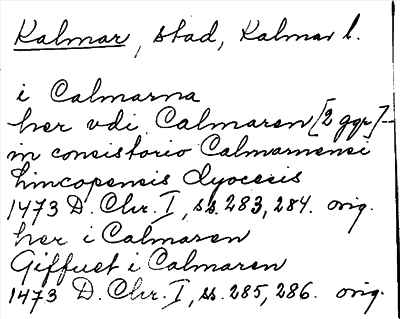 Kalmar, stad, Kalmar l.
i Calmarna
her vdi Calmaren [2 ggr]-
in consistorio Calmarnensi
Lincopensis dyocesis
1473 D. Chr. I, ss. 283, 284. orig.
her i Calmaren
Giffuet i Calmaren
1473 D. Chr. I, ss. 285, 286. orig.